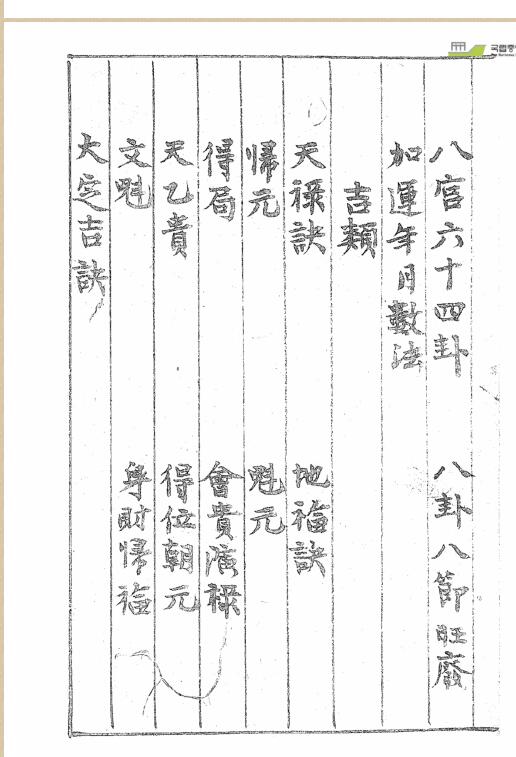 八官六十四卦 八卦八節旺廢
加運年月數法
吉類
天祿訣 地福訣
帰元 魁元
得局 會貴廣祿
天乙貴 得位朝元
文魁 身財帰福
大定吉訣